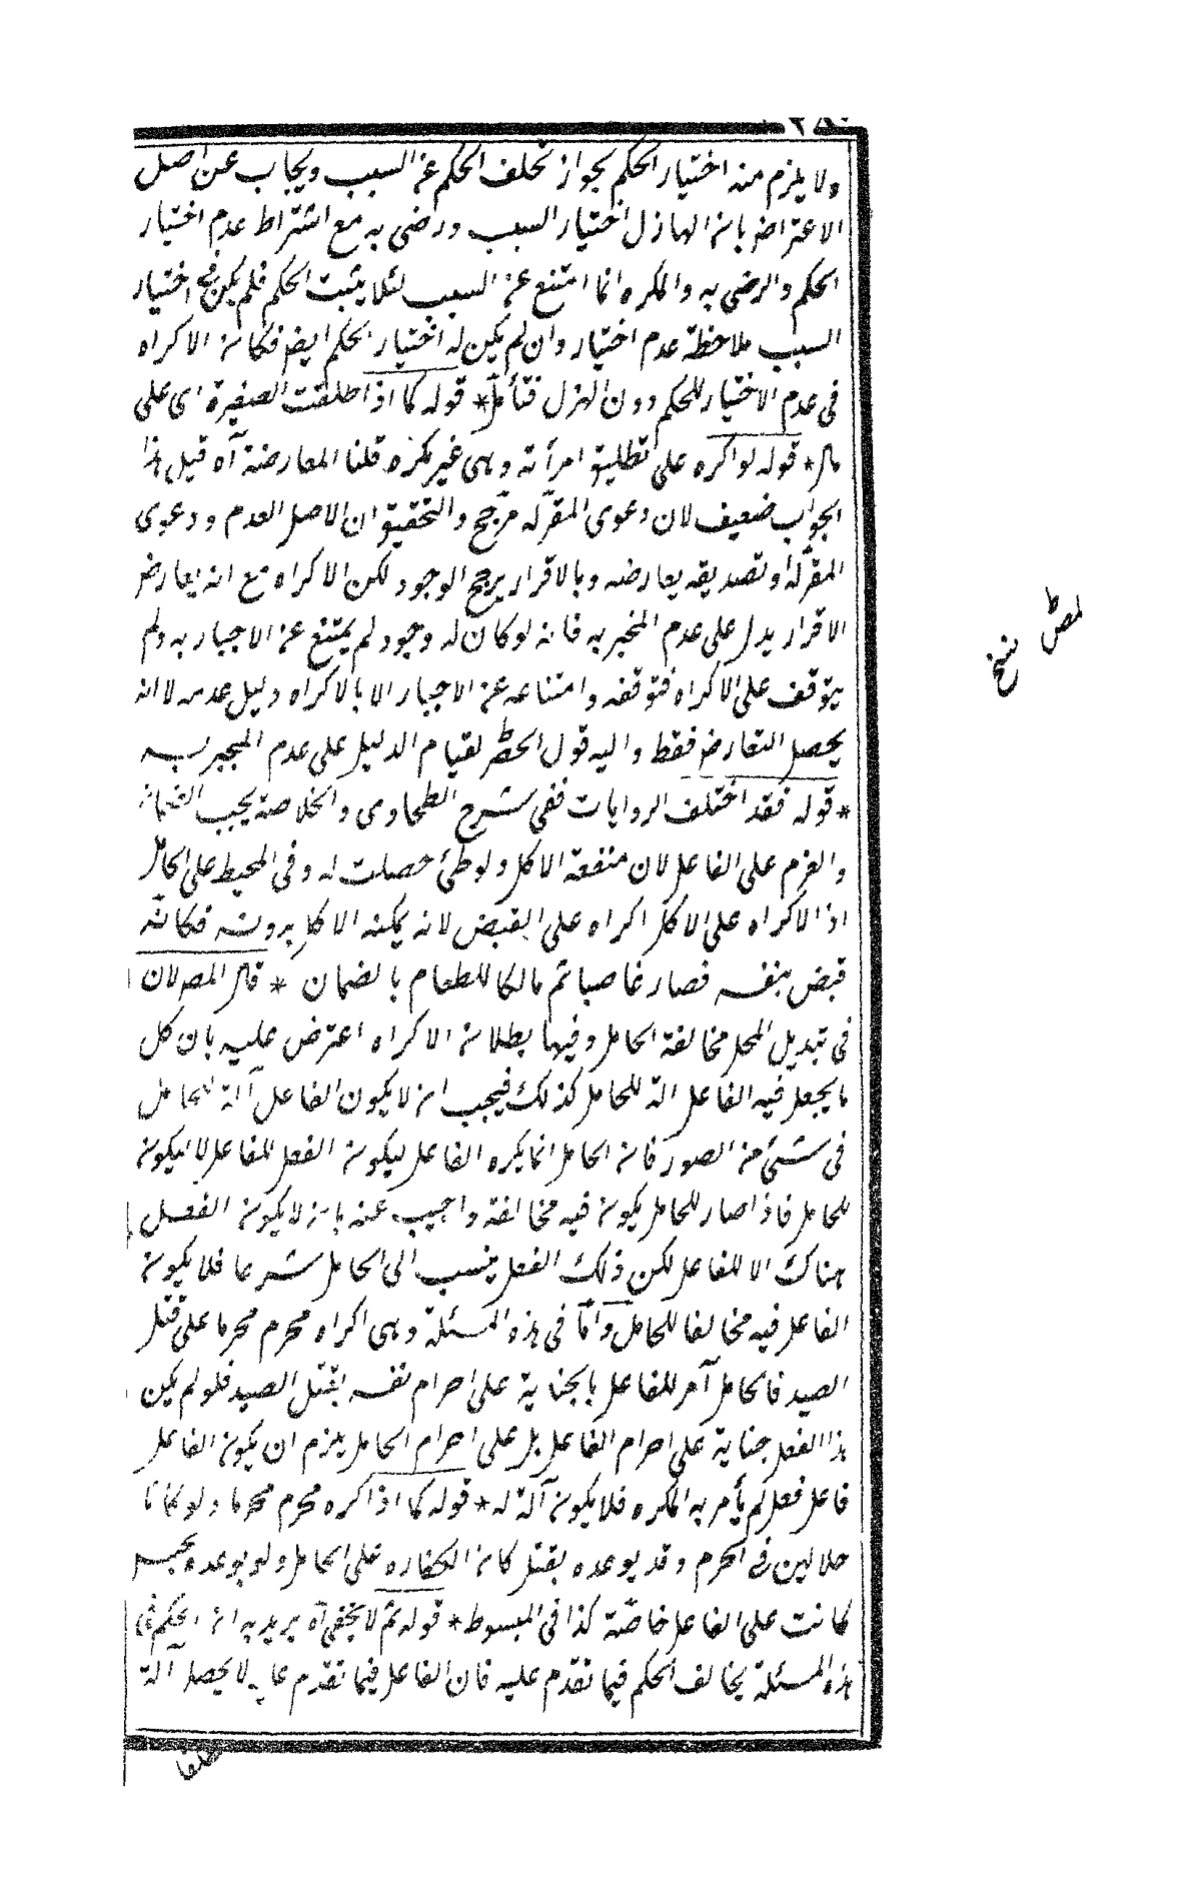 ولا يلزم منه اختيار الحكم لجواز تخلف الحكم عن السبب ويجاب عن اصل
الاعتراض بان الهازل اختيار السبب ورضى به مع اشتراط عدم اختيار
الحكم والرضى به والمكره انما امتنع عن السبب لئلا يثبت الحكم فلم يكن فى اختيار
السبب ملاحظة عدم اختيار وان لم يكن له اختيار الحكم ايضا فكان الاكراه
فى عدم الاختيار للحكم دون الهزل فتأمل * قوله كما اذا طلقت الصغيرة اى على
مال * قوله لو اكره على تطليق امرأته وهى غير مكره قلنا المعارضة آه قيل هذا
الجواب ضعيف لان دعوى المقر له مرجح والتحقيق ان الاصل العدم ودعوى
المقر له او تصديقه يعارضه وبالاقرار يرجح الوجود لكن الاكراه مع انه يعارض
الاقرار يدل على عدم المخبر به فانه لو كان له وجود لم يمتنع عن الاخبار به ولم
يتوقف على الاكراه فتوقفه وامتناعه عن الاخبار الا بالاكراه دليل عدمه لا انه
يحصل التعارض فقط واليه قول المصر لقيام الدليل على عدم المخبر به
* قوله فقد اختلف الروايات ففى شرح الطحاوى والخلاصة يجب الضمان
والغرم على الفاعل لان منفعة الاكل ولوطئ حصلت له وفى المحيط على الحامل
اذ الاكراه على الاكل اكراه على القبض لانه يمكنه الاكل بدونه فكانه
قبض بنفسه فصار غاصبا ثم مالكا للطعام بالضمان * قال المصر لان
فى تبديل المحل مخالفة الحامل وفيها بطلان الاكراه اعترض عليه بان كل
ما يجعل فيه الفاعل الة للحامل كذلك فيجب ان لا يكون الفاعل آلة للحامل
فى شئ من الصور فان الحامل انما يكره الفاعل ليكون الفعل للفاعل لا ليكون
للحامل فاذا صار للحامل يكون فيه مخالفة واجيب عنه بان لا يكون الفعل
هناك الا للفاعل لكن ذلك الفعل ينسب الى الحامل شرعا فلا يكون
الفاعل فيه مخالفا للحامل واما فى هذه المسئلة وهى اكراه محرم محرما على قتل
الصيد فالحامل آمر للفاعل بالجناية على احرام نفسه بقتل الصيد فلو لم يكن
هذا الفعل جناية على احرام الفاعل بل على احرام الحامل يلزم ان يكون الفاعل
فاعل فعل لم يأمر به المكره فلا يكون آلة له * قوله كما اذا اكره محرم محرما ولو كانا
حلالين فى الحرم وقد يوعده بقتل كان الكفاره على الحامل ولو يوعده بحبس
كانت على الفاعل خاصّة كذا فى المبسوط * قوله ثم لا يخفى آه يريد به ان الحكم فى
هذه المسئلة يخالف الحكم فيما تقدم عليه فان الفاعل فيما تقدم عليه لا يحصل آلة
مطلقا
لمصر نسخ